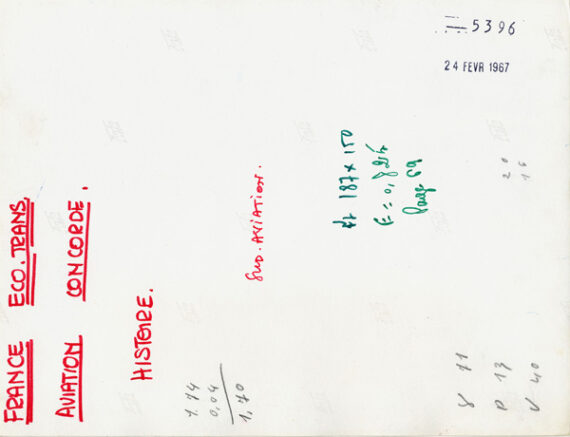 5396
24 FEVR 1967
FRANCE ECO.TRANS.
AVIATION CONCORDE.
HISTOIRE.
SUD.AVIATION.
187 x 150
E = 0,824
Page 69
0,04
1,70
20
16
11
P 13
V 40